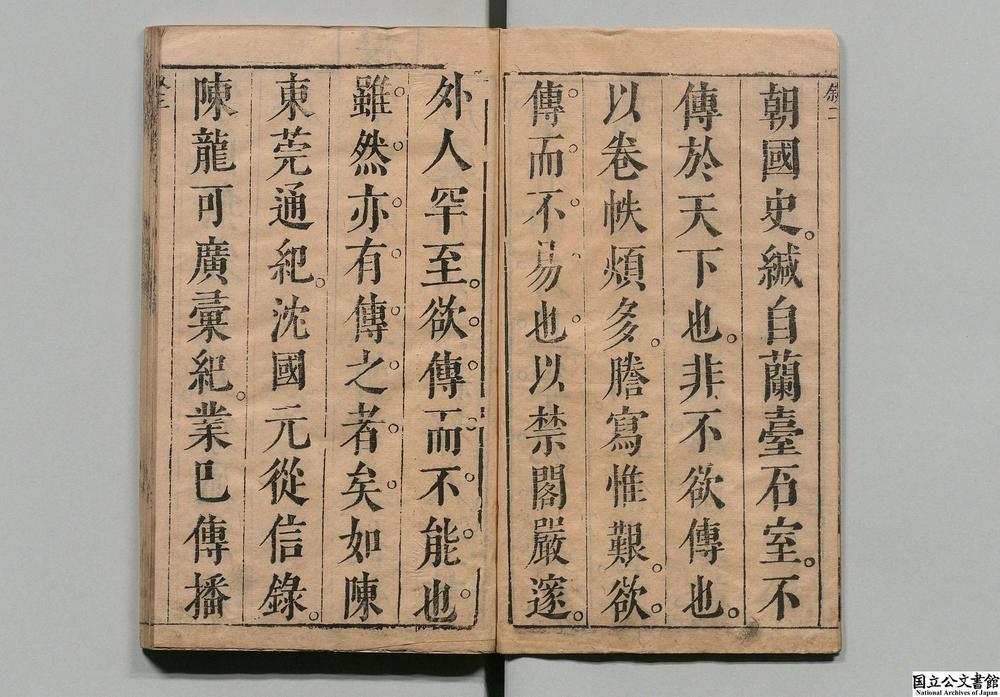 叙二
朝國史。緘自蘭臺石室。不
傳於天下也。非不欲傳也。
以卷帙煩多。謄寫惟艱。欲
傳而不易也以禁閣嚴邃。
外人罕至。欲傳而不能也。
雖然亦有傳之者矣如陳
東莞通紀。沈國元從信錄。
陳龍可廣彙紀。業已傳播
叙三
国立公文書館
National Archives of Japan